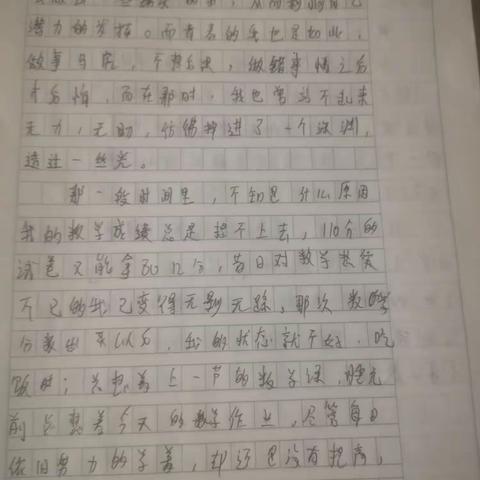 潜力的发挥。而有名的我也是如此，
做事马虎，不想后果，做错事情之后
才后悔，而在那时，我也曾站不起来
无力，无助，仿佛掉进了一个深渊，
透过一丝光。
那一段时间里，不知是什么原因
我的数学成绩总是提不上去，110分的
试卷又能拿80几分，昔日对数学热爱
不已的我已变得无影无踪，那次数学
分数出来以后，我的状态就不好，吃
饭时；总想着上一节的数学课，睡觉
前总想着今天的数学作业，尽管每日
依旧努力的学着，却还是没有提高，